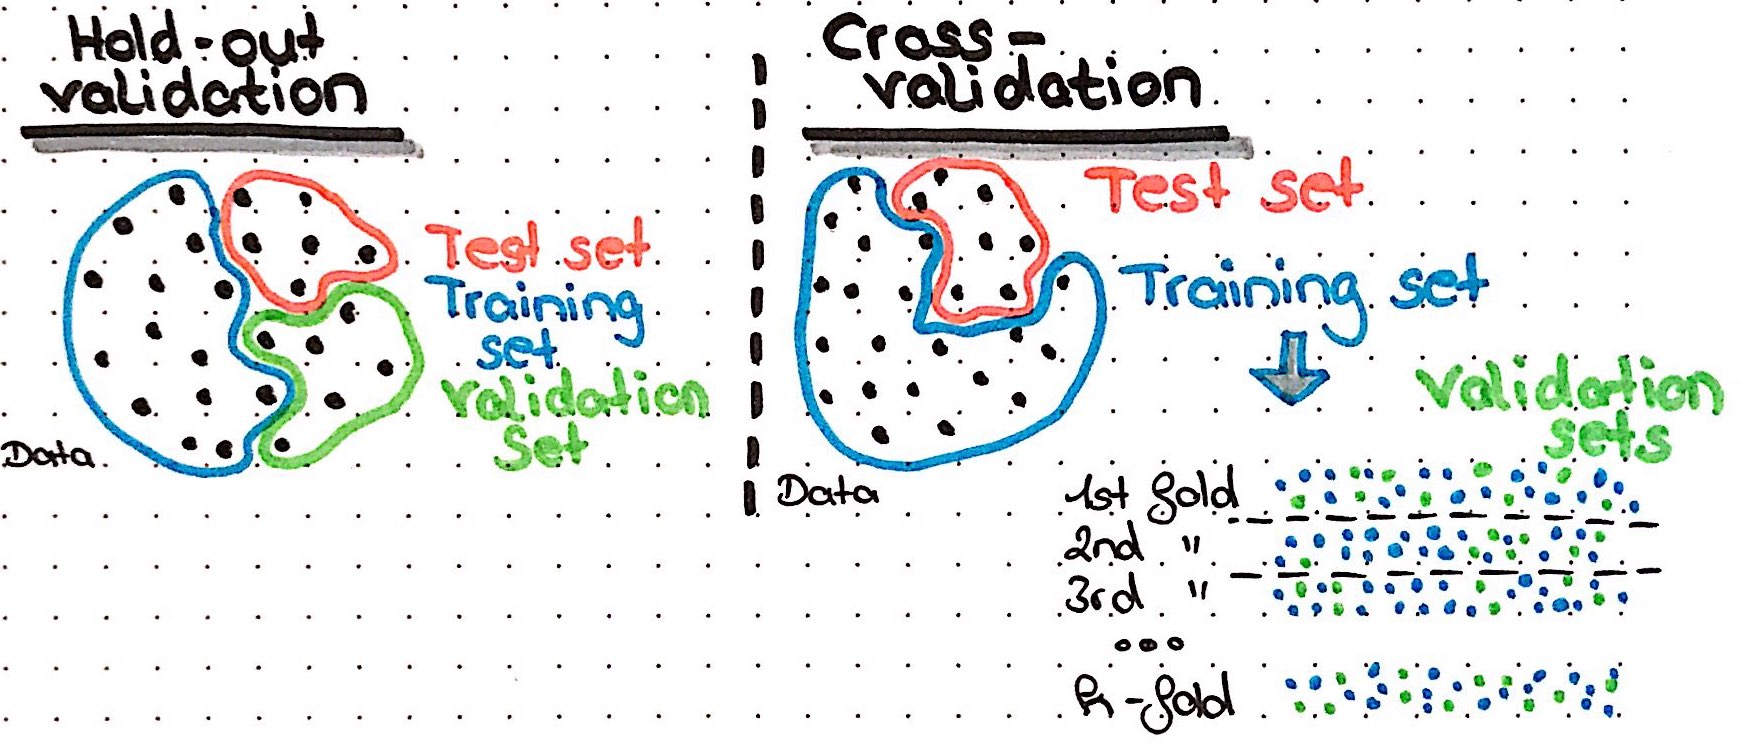 Hold-out
validation
Test set
Training
set
Validation
set
Data
Cross-
validation
Test set
Training set
Validation
sets
Data
1st fold
2nd "
3rd "
...
k-fold